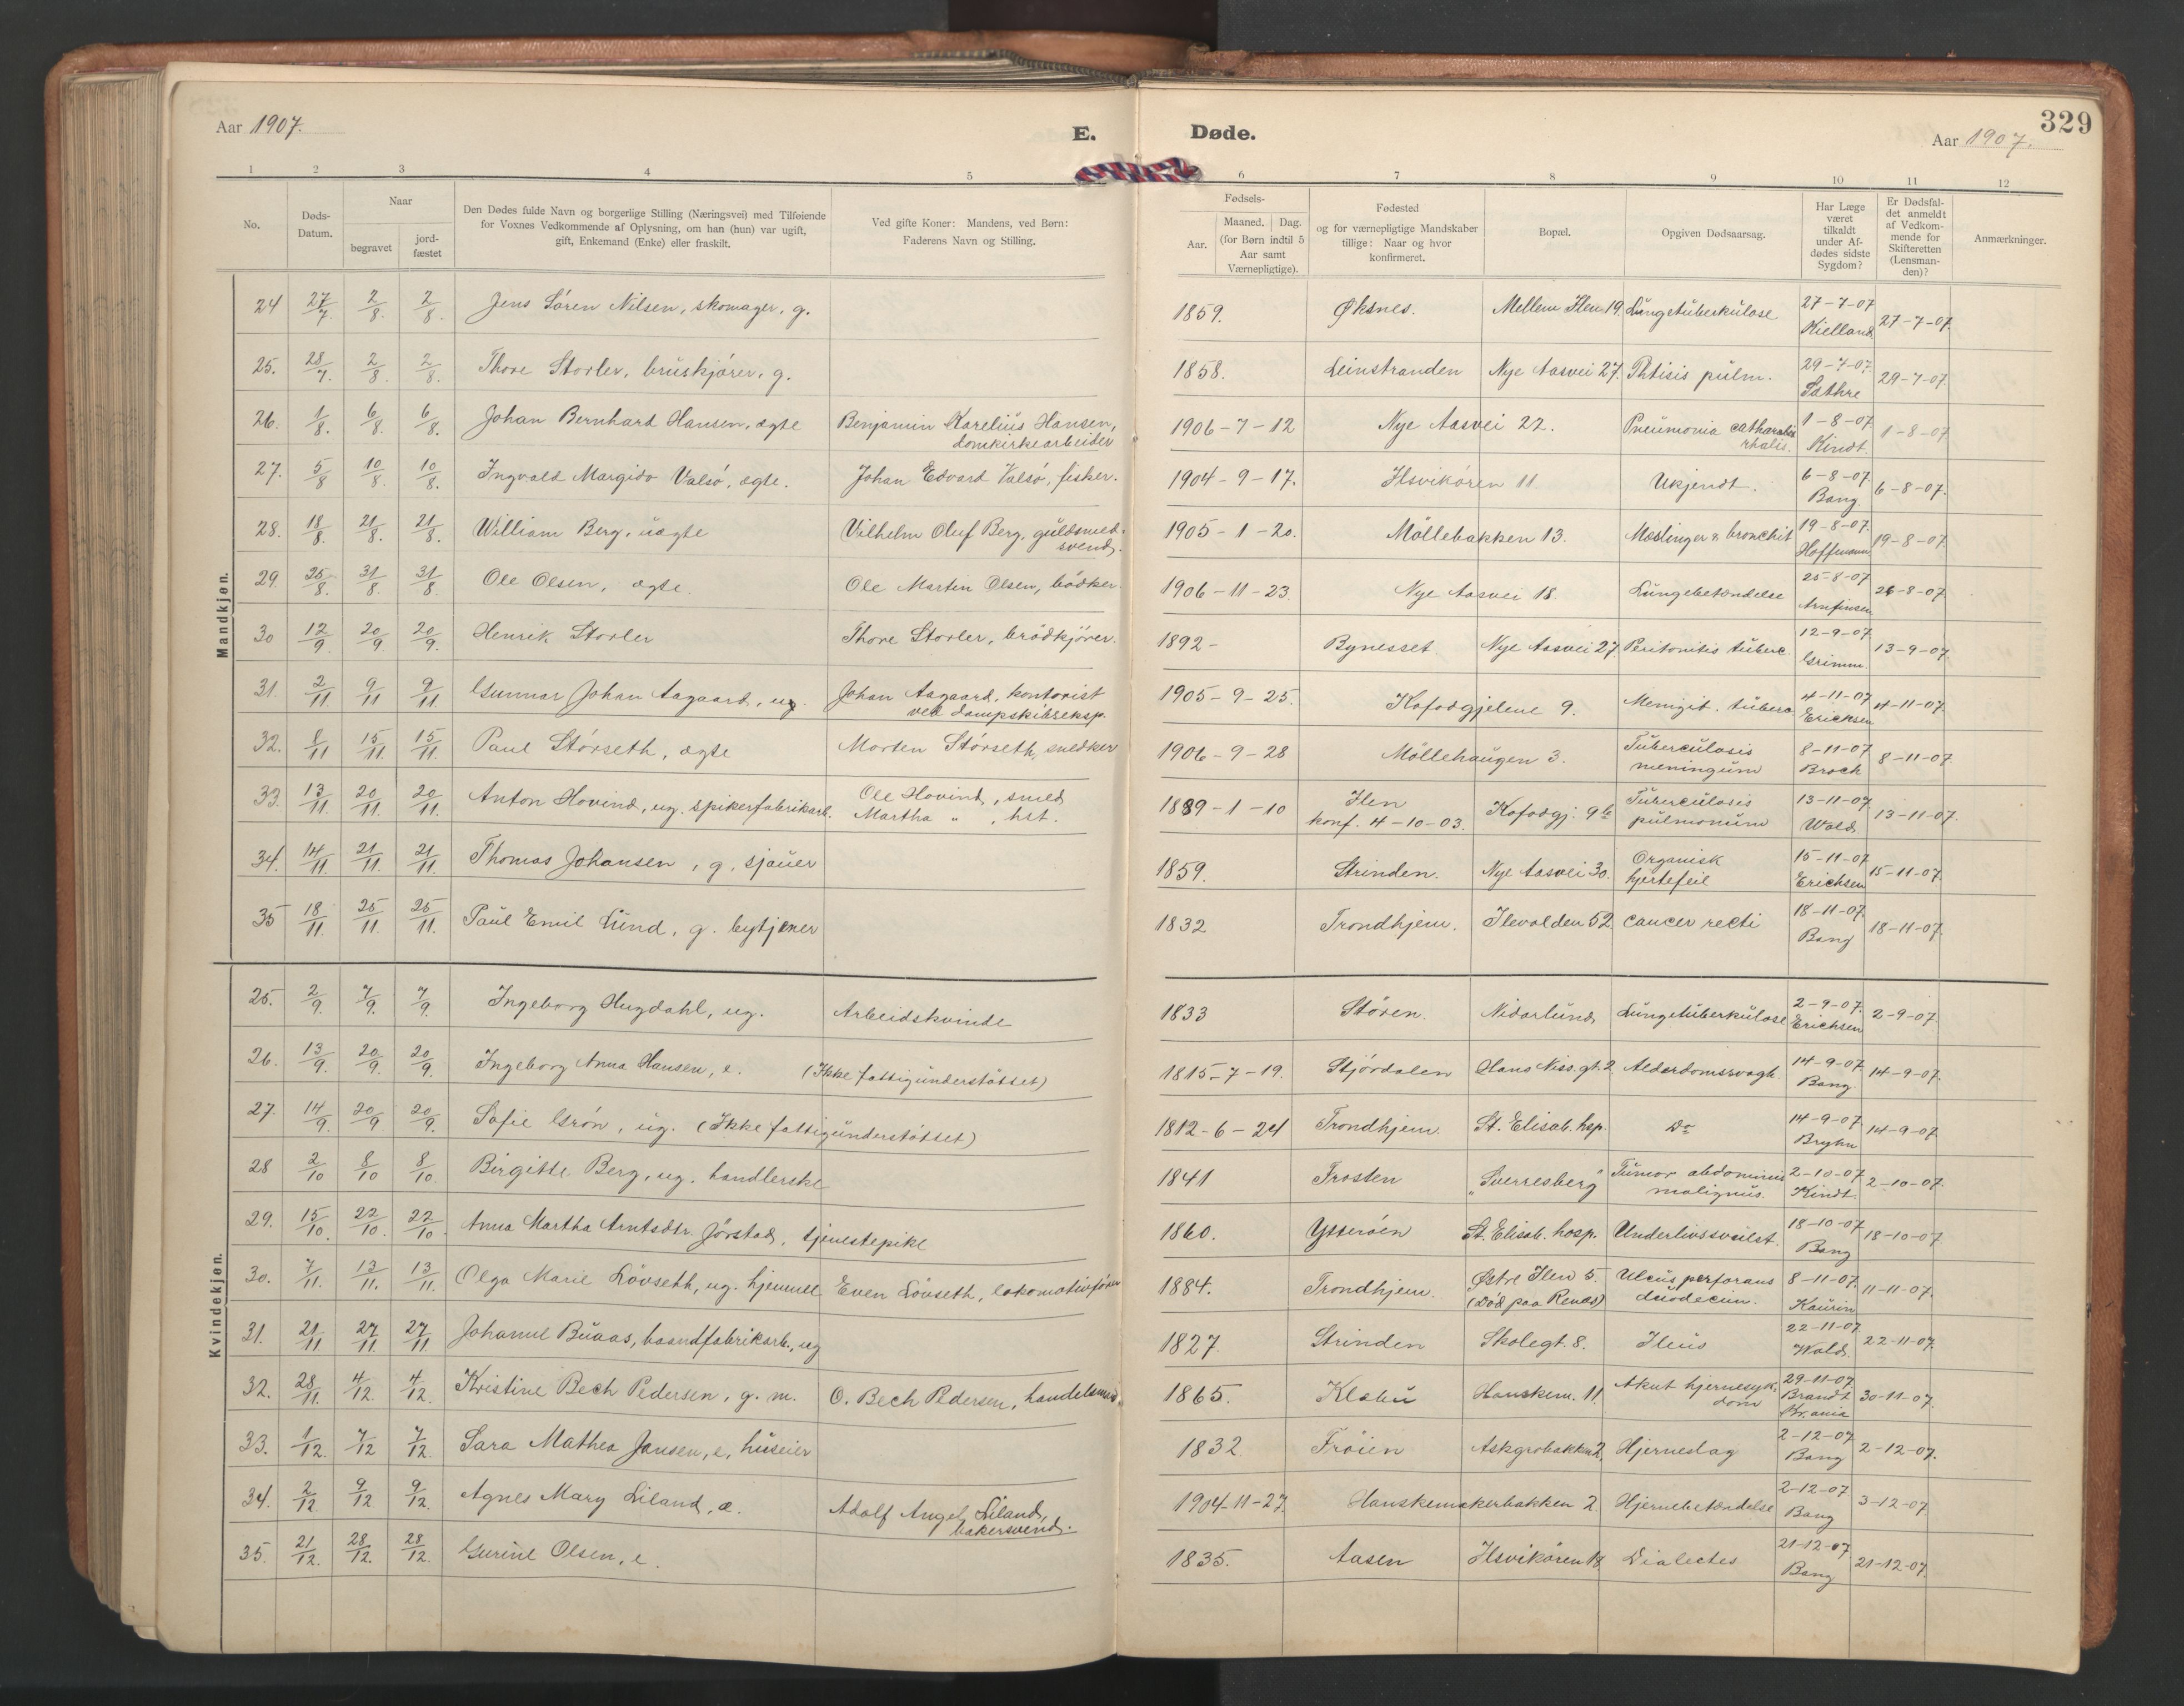 Aar 1907.
E.
Døde.
329
Aar 1907.
1 2 3 4 5 6 7 8 9 10 11 12
No.
Døds-Datum.
Naar
begravet
jord-fæstet
Den Dødes fulde Navn og borgerlige Stilling (Næringsvei) med Tilføiende
for Voxnes Vedkommende af Oplysning, om han (hun) var ugift,
gift, Enkemand (Enke) eller fraskilt.
Ved gifte Koner: Mandens, ved Børn:
Faderens Navn og Stilling.
Fødsels-
Aar.
Maaned. Dag.
(for Børn indtil 5
Aar samt
Værnepligtige).
Fødested
og for værnepligtige Mandskaber
tillige: Naar og hvor
konfirmeret.
Bopæl.
Opgiven Dødsaarsag.
Har Læge
været
tilkaldt
under Af-
dødes sidste
Sygdom?
Er Dødsfal-
det anmeldt
af Vedkom-
mende for
Skifteretten
(Lensman-
den)?
Anmærkninger.
Mandkjøn.
24 27/7. 2/8. 2/8. Jens Sören Nilsen, skomager, g. 1859. Øksnes. Mellem Ilen 19. Lungetuberkulose 27-7-07 Kielland 27-7-07.
25. 28/7. 2/8. 2/8. Thore Storler, bruskjörer, g. 1858. Leinstranden Nye Aasvei 27. Phtisis pulm. 29-7-07. Sathre 29-7-07.
26. 1/8. 6/8. 6/8. Johan Bernhard Hansen, ægte Benjamin Karelius Hansen, domkirkearbeider 1906-7-12 Nye Aasvei 22. Pneumonia catharrhalis. 1-8-07 Kindt. 1-8-07
27. 5/8 10/8. 10/8. Ingvald Margido Valsö, ægte. Johan Edvard Valsö, fisker. 1904-9-17. Ilsvikören 11 Ukjendt. 6-8-07. Bang 6-8-07.
28. 18/8. 21/8. 21/8. William Berg, uægte Vilhelm Oluf Berg, guldsmedsvend. 1905-1-20. Möllebakken 13. Mæslinger & bronchit 19-8-07. Hoffmann 19-8-07.
29. 25/8. 31/8. 31/8 Ole Olsen, ægte. Ole Martin Olsen, bödker. 1906-11-23. Nye Aasvei 18. Lungebetændelse 25-8-07 Arnfinsen 26-8-07.
30 12/9. 20/9. 20/9. Henrik Storler Thore Storler, brödkjörer. 1892- Bynesset. Nye Aasvei 27. Peritonitis tuberc. 12-9-07 Grimm. 13-9-07.
31. 2/11 9/11 9/11. Gunnar Johan Aagaard, ug. Johan Aagaard, kontorist ved dampskibseksp. 1905-9-25. Kofodgjelene 9. Meningit. tuberc. 4-11-07 Erichsen 4-11-07.
32. 8/11 15/11. 15/11. Paul Störseth, ægte Morten Störseth, snedker 1906-9-28 Möllehaugen 3. Tuberculosis meningum 8-11-07 Broch 8-11-07.
33. 13/11. 20/11. 20/11. Anton Hovind, ug. spikerfabrikarb. Ole Hovind, smed Martha „ , hst. 1889-1-10 Ilen konf. 4-10-03. Kofodgj. 9b Tuberculosis pulmonum 13-11-07. Wold 13-11-07.
34. 14/11. 21/11. 21/11. Thomas Johansen, g, sjauer 1859. Strinden. Nye Aasvei 30. Organisk hjertefeil 15-11-07 Erichsen 15-11-07.
35 18/11. 25/11. 25/11. Paul Emil Lund, g. bytjener 1832 Trondhjem. Ilevolden 52. cancer recti 18-11-07. Bang 18-11-07.
Kvindekjøn.
25. 2/9 7/9. 7/9. Ingeborg Hugdahl, ug. Arbeidskvinde 1833 Stören. Nidarlund Lungetuberkulose 2-9-07. Erichsen 2-9-07.
26. 13/9. 20/9. 20/9. Ingeborg Anna Hansen, e. (Ikke fattigunderstöttet) 1815-7-19. Stjördalen Hans Niss.gt. 2 Alderdomssvagh. 14-9-07 Bang. 14-9-07.
27. 14/9. 20/9 20/9. Sofie Grön, ug. (Ikke fattigunderstöttet) 1812-6-24 Trondhjem. St. Elisab. hsp. Do 14-9-07 Bryhn 14-9-07
28 2/10 8/10 8/10. Birgitte Berg, ug. handlerske 1841 Frosten „Sverresberg" Tumor abdominis malignus. 2-10-07 Kindt. 2-10-07.
29. 15/10. 22/10. 22/10. Anna Martha Arntsdtr. Jörstad, tjenestepike 1860. Ytteröen St. Elisab. hosp. Underlivssvulst. 18-10-07 Bang 18-10-07
30. 7/11. 13/11. 13/11. Olga Marie Lövseth, ug. hjemme Even Lövseth, lokomotivförer 1884. Trondhjem. Østre Ilen 5. (Död paa Renæs) Ulcus perforans duodecim. 8-11-07. Kaurin 11-11-07.
31. 21/11 27/11 27/11. Johanne Buaas, baandfabrikarb., ug 1827. Strinden Skolegt. 8. Ileus 22-11-07 Wold. 22-11-07.
32. 28/11. 4/12. 4/12. Kristine Bech Pedersen, g. m. O. Bech Pedersen, handelsmand 1865. Klæbu Hanskem. 11. Akut hjernesykdom 29-11-07. Brandt Kr.ania 30-11-07.
33. 1/12. 7/12 7/12. Sara Mathea Jansen, e, huseier 1832. Fröien Askgrobakken 2, Hjerneslag 2-12-07. Bang 2-12-07.
34. 2/12. 9/12 9/12. Agnes Mary Liland, æ. Adolf Angel Liland, bakersvend. 1904-11-27. Hanskemakerbakken 2 Hjernebetændelse 2-12-07. Bang 3-12-07
35. 21/12. 28/12. 28/12. Gurine Olsen, e. 1835. Aasen Ilsvikören 18. Dialectes 21-12-07 Bang 21-12-07.